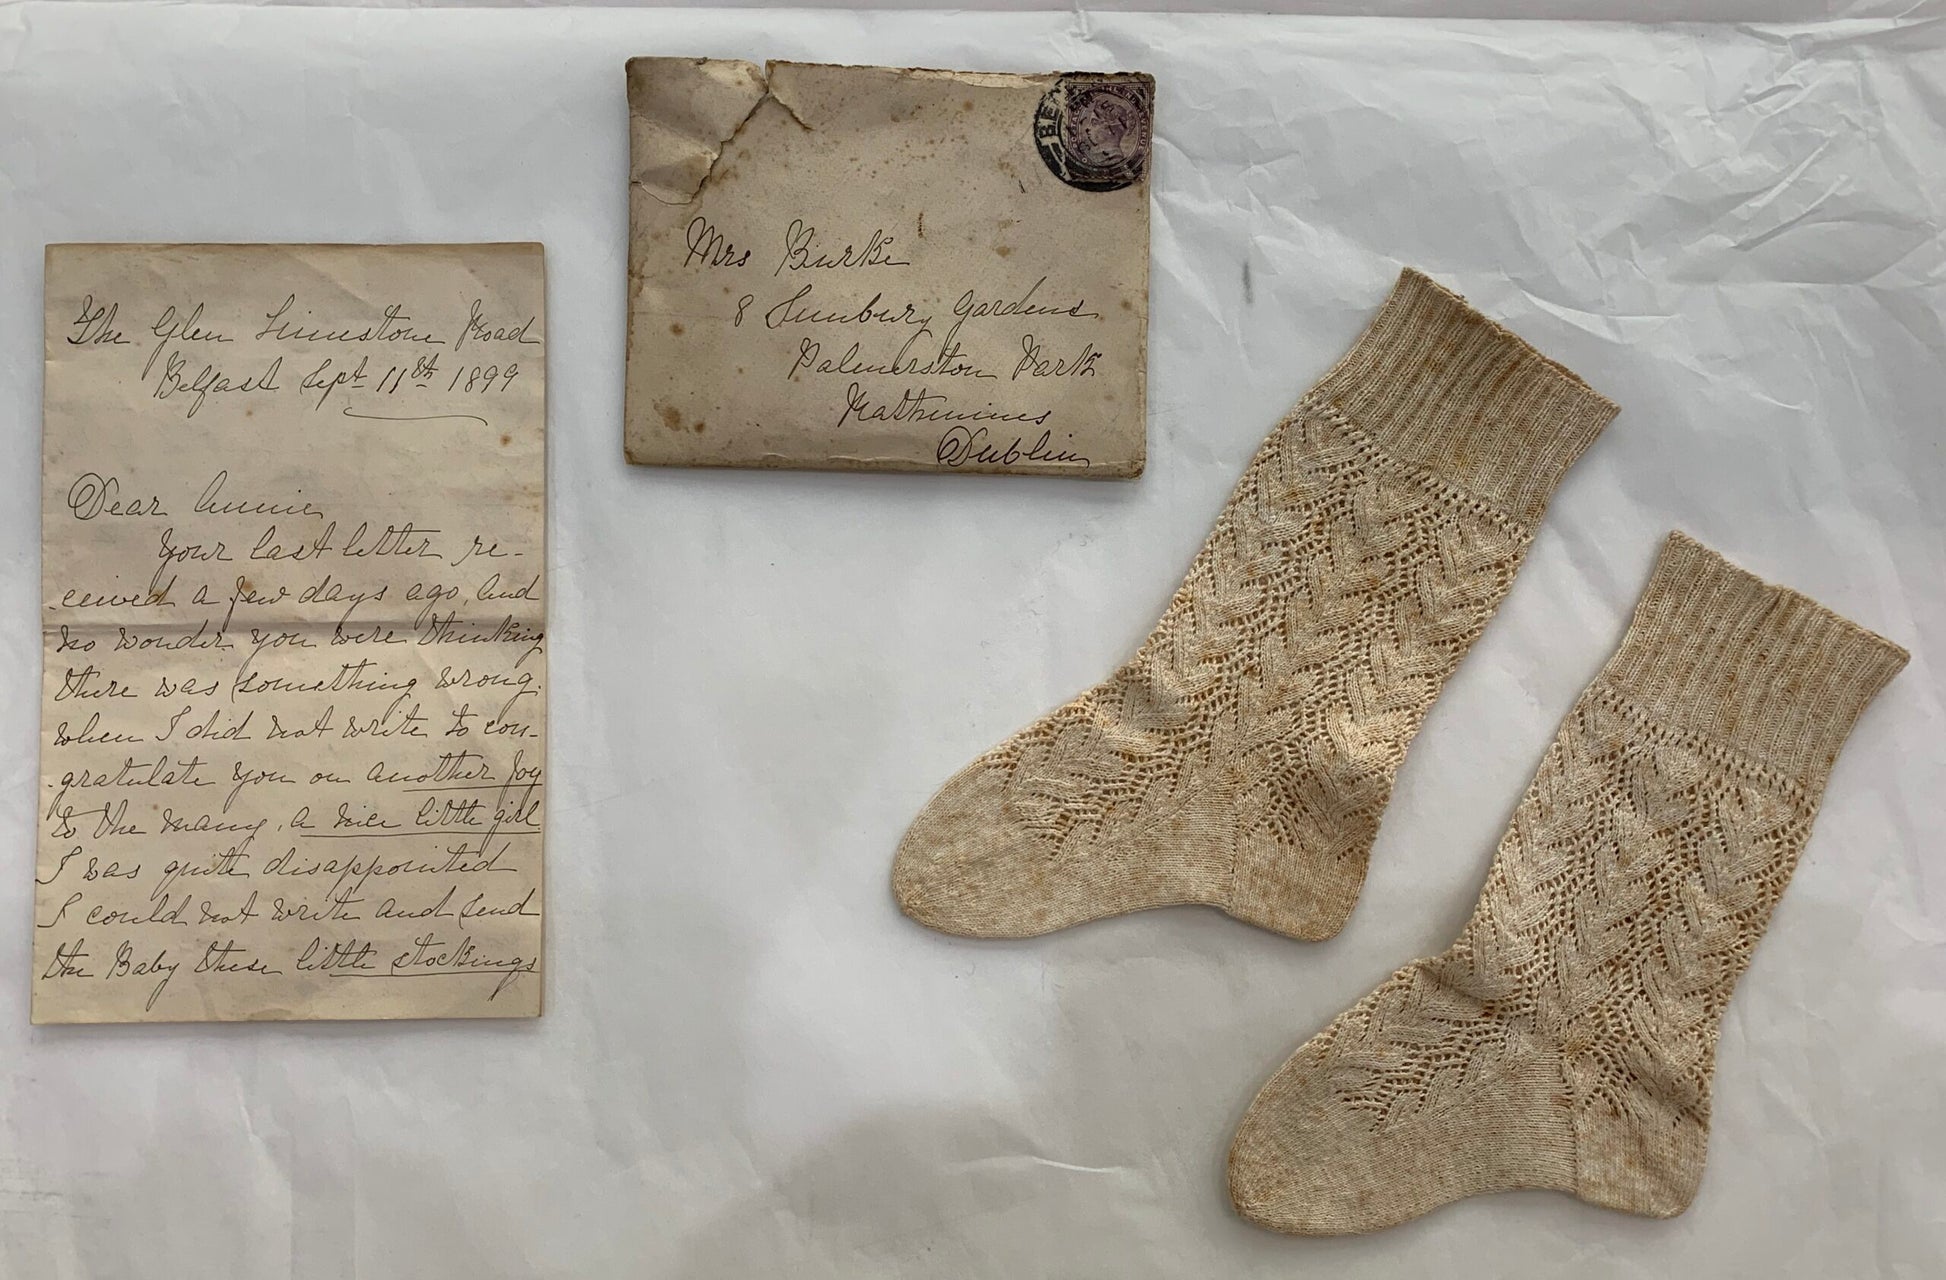 The Glen Limestone Road
Belfast Sept 11th 1899
Dear Annie
Your last letter re-
ceived a few days ago, and
no wonder you were thinking
there was something wrong.
when I did not write to con-
gratulate you on another joy
to the many, a nice little girl.
I was quite disappointed
I could not write and send
the Baby these little stockings
Mrs Burke
8 Sunbury Gardens
Palmerston Park
Rathmines
Dublin